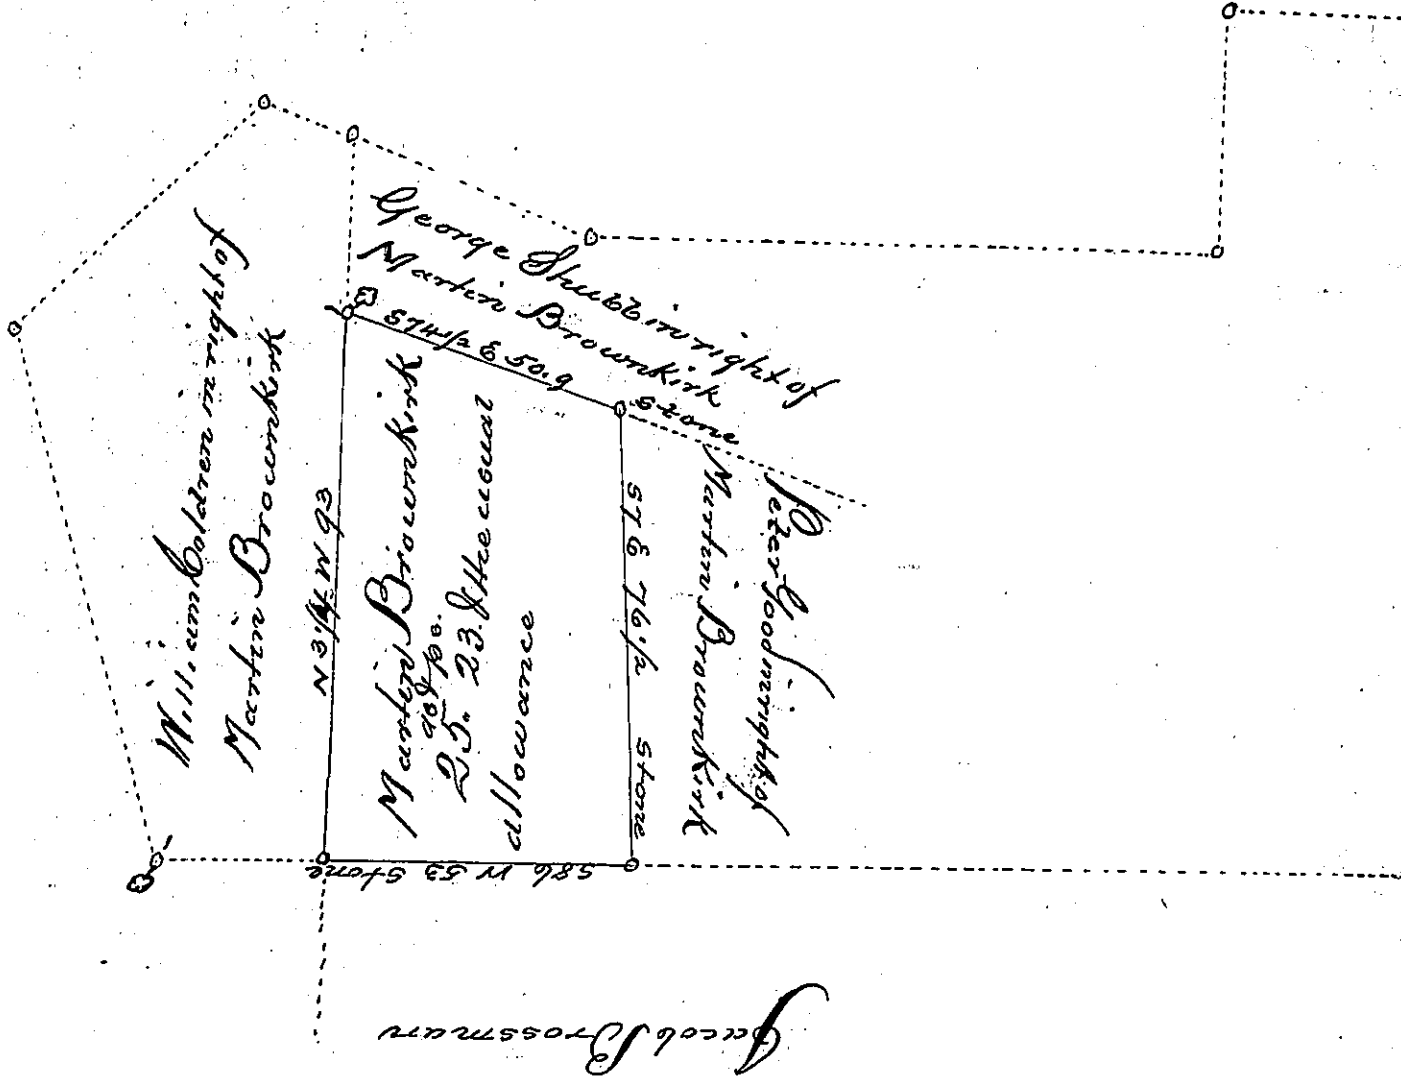 William Coldren in right of
Martin Brownkirk
George Stubb in right of
Martin Brownkirk
S 74 1/2 E 50.9
Stone
N 3 1/4 W 93
Martin Brownkirk
as ps.
25. 23. & the usual
allowance
S 7 E 76 1/2 Stone
Martin Brownkirk
Peter Good in right of
S 86 W 53 Stone
Jacob Brossman